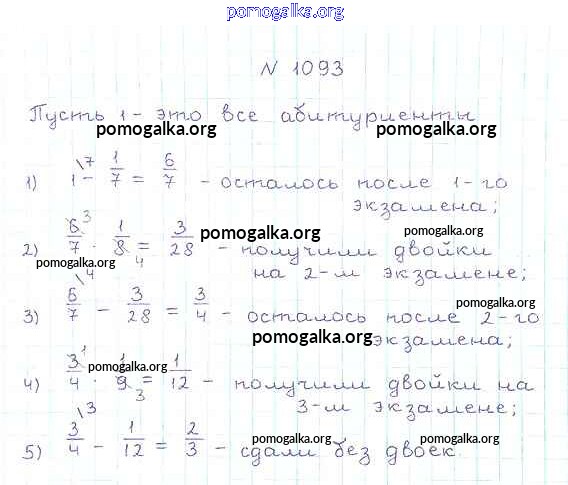 pomogalka.org
N 1093
Пусть 1 - это все абитуриенты
pomogalka.org pomogalka.org
1) 1\7 - 1/7 = 6/7 - осталось после 1-го
экзамена;
pomogalka.org pomogalka.org
2) 6 3/7 · 1/8 4 = 3/28 - получили двойки
pomogalka.org
на 2-м экзамене;
3) 6/7\4 - 3/28 = 3/4 - осталось после 2-го
pomogalka.org
экзамена;
pomogalka.org
4) 3 1/4 · 1/9 3 = 1/12 - получили двойки на
pomogalka.org
3-м экзамене;
5) 3/4\3 - 1/12 = 2/3 - сдали без двоек.
pomogalka.org pomogalka.org